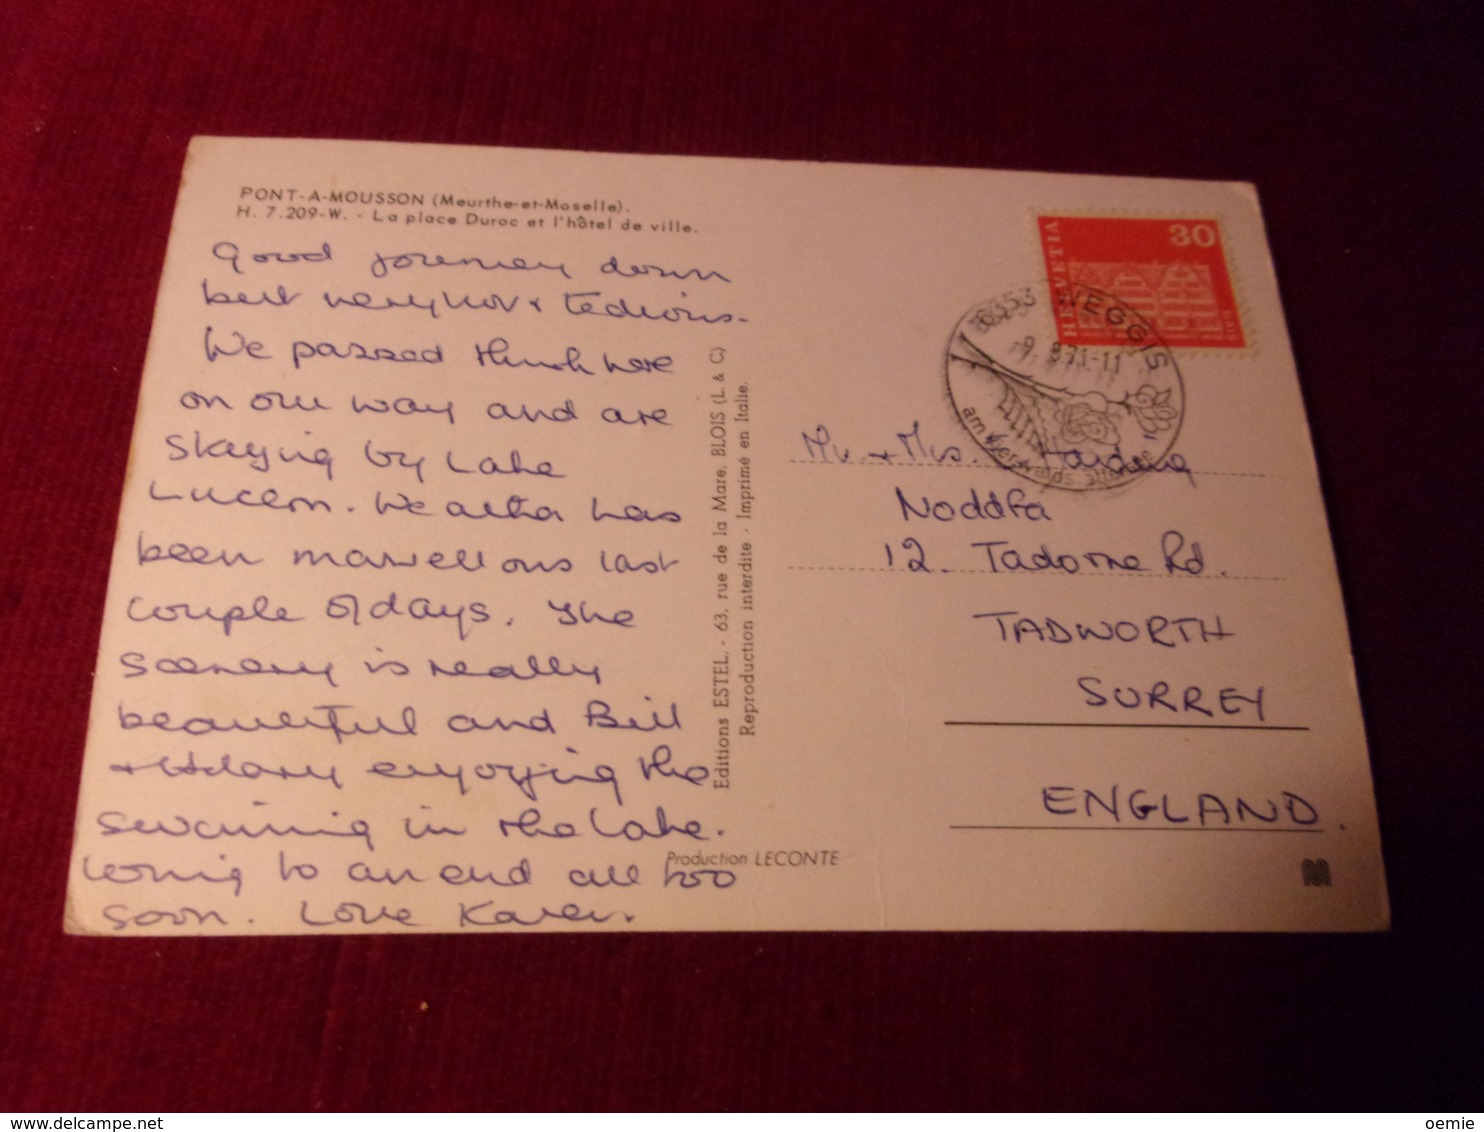 PONT-A-MOUSSON (Meurthe-et-Moselle).
H. 7.209-W. - La place Duroc et l'hôtel de ville.
Good journey down
but very hot & tedious.
We passed through here
on our way and are
staying by Lake
Lucern. Weather has
been marvellous last
couple of days. The
scenery is really
beautiful and Bill
& Hilary enjoying the
swimming in the Lake.
Coming to an end all too
soon. Love Karen.
Editions ESTEL, - 63, rue de la Mare, BLOIS (L. & C)
Reproduction interdite - Imprimé en Italie.
Production LECONTE
HELVETIA
30
6353 WEGGIS
9.8.71-11
am
Mr. & Mrs. Harding
Noddfa
12. Tadorne Rd.
TADWORTH
SURREY
ENGLAND.
M
www.delcampe.net
oemie